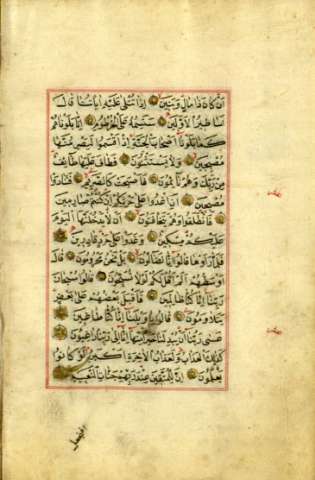 اَنْ كَانَ ذَا مَالٍ وَبَنِينَ اِذَا تُتْلٰى عَلَيْهِ اٰيَاتُنَا قَالَ
اَسَاطِيرُ الْاَوَّلِينَ سَنَسِمُهُ عَلَى الْخُرْطُومِ اِنَّا بَلَوْنَاهُمْ
كَمَا بَلَوْنَا اَصْحَابَ الْجَنَّةِ اِذْ اَقْسَمُوا لَيَصْرِمُنَّهَا
مُصْبِحِينَ وَلَا يَسْتَثْنُونَ فَطَافَ عَلَيْهَا طَائِفٌ
مِنْ رَبِّكَ وَهُمْ نَائِمُونَ فَاَصْبَحَتْ كَالصَّرِيمِ فَتَنَادَوْا
مُصْبِحِينَ اَنِ اغْدُوا عَلٰى حَرْثِكُمْ اِنْ كُنْتُمْ صَارِمِينَ
فَانْطَلَقُوا وَهُمْ يَتَخَافَتُونَ اَنْ لَا يَدْخُلَنَّهَا الْيَوْمَ
عَلَيْكُمْ مِسْكِينٌ وَغَدَوْا عَلٰى حَرْدٍ قَادِرِينَ
فَلَمَّا رَاَوْهَا قَالُوا اِنَّا لَضَالُّونَ بَلْ نَحْنُ مَحْرُومُونَ قَالَ
اَوْسَطُهُمْ اَلَمْ اَقُلْ لَكُمْ لَوْلَا تُسَبِّحُونَ قَالُوا سُبْحَانَ
رَبِّنَا اِنَّا كُنَّا ظَالِمِينَ فَاَقْبَلَ بَعْضُهُمْ عَلٰى بَعْضٍ
يَتَلَاوَمُونَ قَالُوا يَا وَيْلَنَا اِنَّا كُنَّا طَاغِينَ
عَسٰى رَبُّنَا اَنْ يُبْدِلَنَا خَيْرًا مِنْهَا اِنَّا اِلٰى رَبِّنَا رَاغِبُونَ
كَذٰلِكَ الْعَذَابُ وَلَعَذَابُ الْاٰخِرَةِ اَكْبَرُ لَوْ كَانُوا
يَعْلَمُونَ اِنَّ لِلْمُتَّقِينَ عِنْدَ رَبِّهِمْ جَنَّاتِ النَّعِيمِ
افنجعل